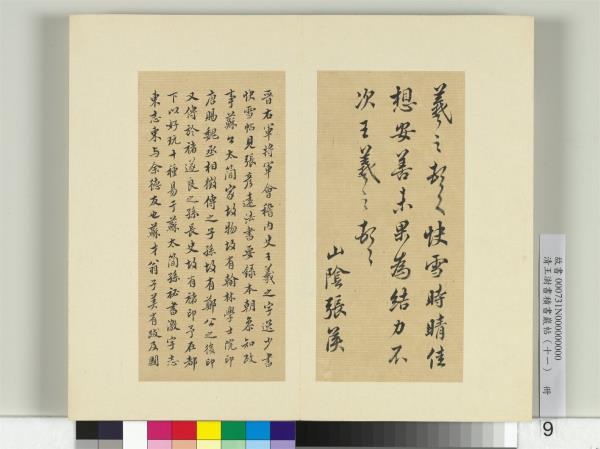 羲之頓首快雪時晴佳
想安善未果為結力不
次王羲之頓首
山陰張侯
晉右軍將軍會稽內史王羲之字逸少書
快雪帖見張彥遠法書要錄本朝參知政
事蘇公太簡家故物故有翰林學士院印
唐賜魏丞相徵傳之子孫故有鄭公之後印
又傳於褚遂良之孫長史故有褚印予在都
下以好玩十種易于蘇太簡孫祕書激字志
東志東與余德友也蘇才翁子美有跋及國
故書 000731N000000000
清王澍書積書巖帖(十一) 冊
9